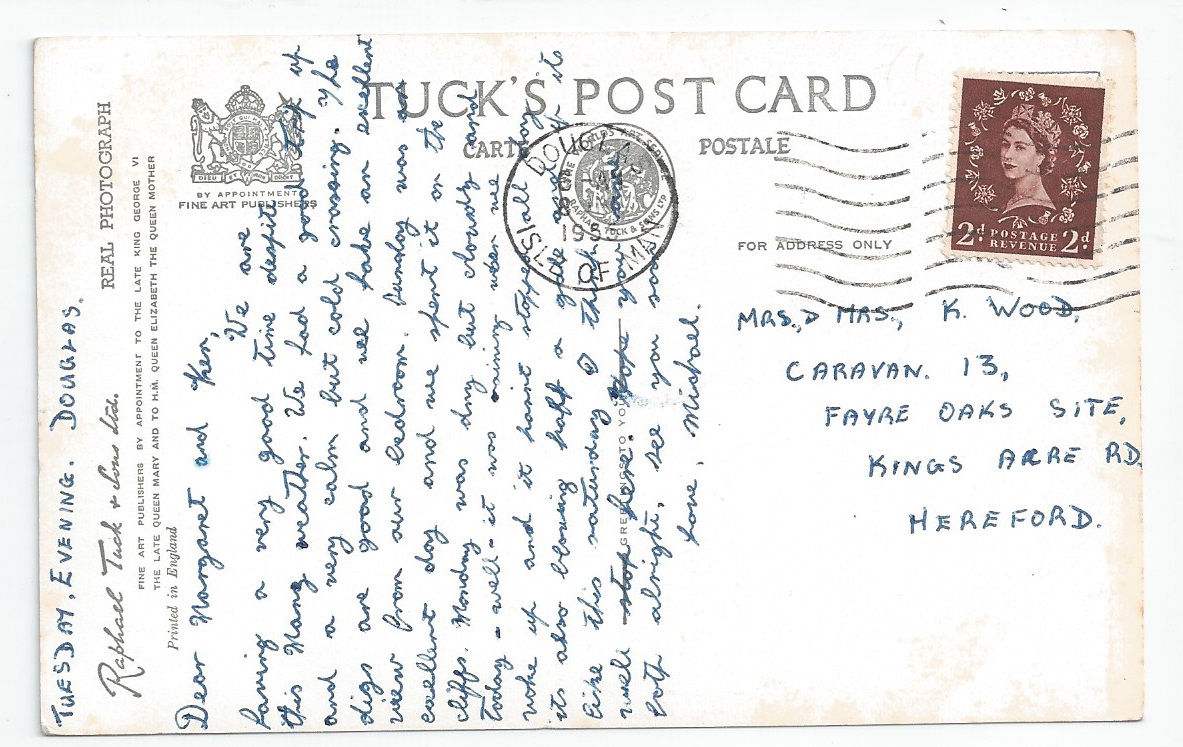 TUCK'S POST CARD
CARTE POSTALE
FOR ADDRESS ONLY
BY APPOINTMENT
FINE ART PUBLISHERS
DIEU ET MON DROIT
REAL PHOTOGRAPH
FINE ART PUBLISHERS BY APPOINTMENT TO THE LATE KING GEORGE VI
THE LATE QUEEN MARY AND TO H.M. QUEEN ELIZABETH THE QUEEN MOTHER
Raphael Tuck & Sons Ltd.
Printed in England
GREETINGS TO YOU
TUESDAY. EVENING. DOUGLAS.
Dear Margaret and Ken,
We are
having a very good time despite
this Manx weather. We had a good trip up
and a very calm but cold crossing. The
digs are good and we have an excellent
view from our bedroom. Sunday was an
excellent day and we spent it on the
cliffs. Monday was dry but cloudy and
today - well - it was raining when we
woke up and it hasn't stopped all day
its also blowing half a gale
like this saturday I think
well stop here. Hope you are
both alright, see you soon
Love, Michael.
DOUGLAS
195
ISLE OF MAN
RAPHAEL TUCK & SONS LTD
2d POSTAGE REVENUE 2d
MRS., & MRS., K. WOOD,
CARAVAN. 13,
FAYRE OAKS SITE,
KINGS ACRE RD.
HEREFORD.